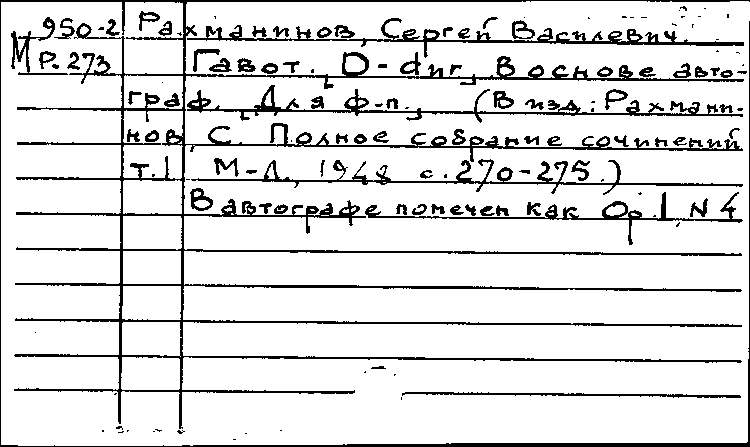 950-2 Рахманинов, Сергей Василевич.
М Р.273 Гавот. [, D-dur]. В основе авто-
граф. [Для ф-п.], (В изд: Рахмани-
нов, С. Полное собрание сочинений
т.1 М-Л., 1948 с.270-275.)
В автографе помечен как Op.1 N 4